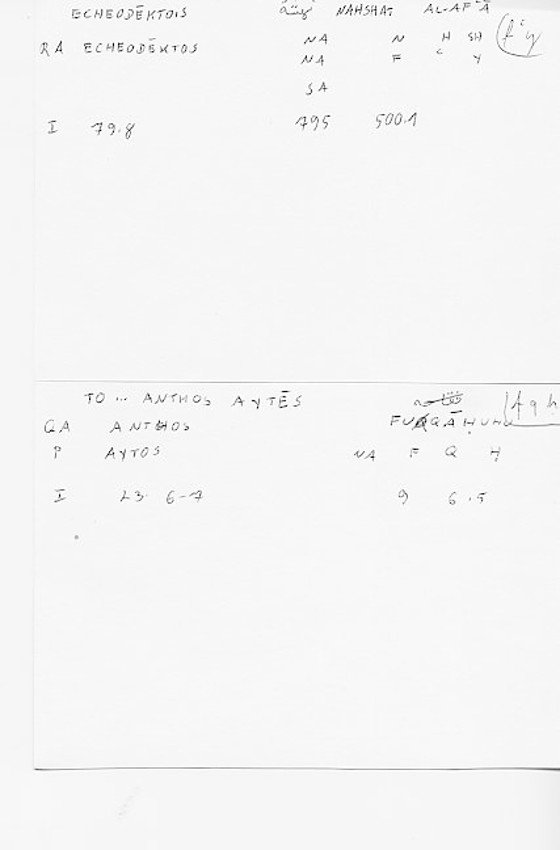 ECHEODĒKTOIS NAHSHAT AL-AFʿĀ
RA ECHEODĒKTOS NA N H SH
NA F ʿ Y
SA
I 79.8 795 500.1
TO ... ANTHOS AYTĒS
QA ANTHOS FUQĀḤUHU
P AYTOS NA F Q Ḥ
I 23. 6-7 9 6.5